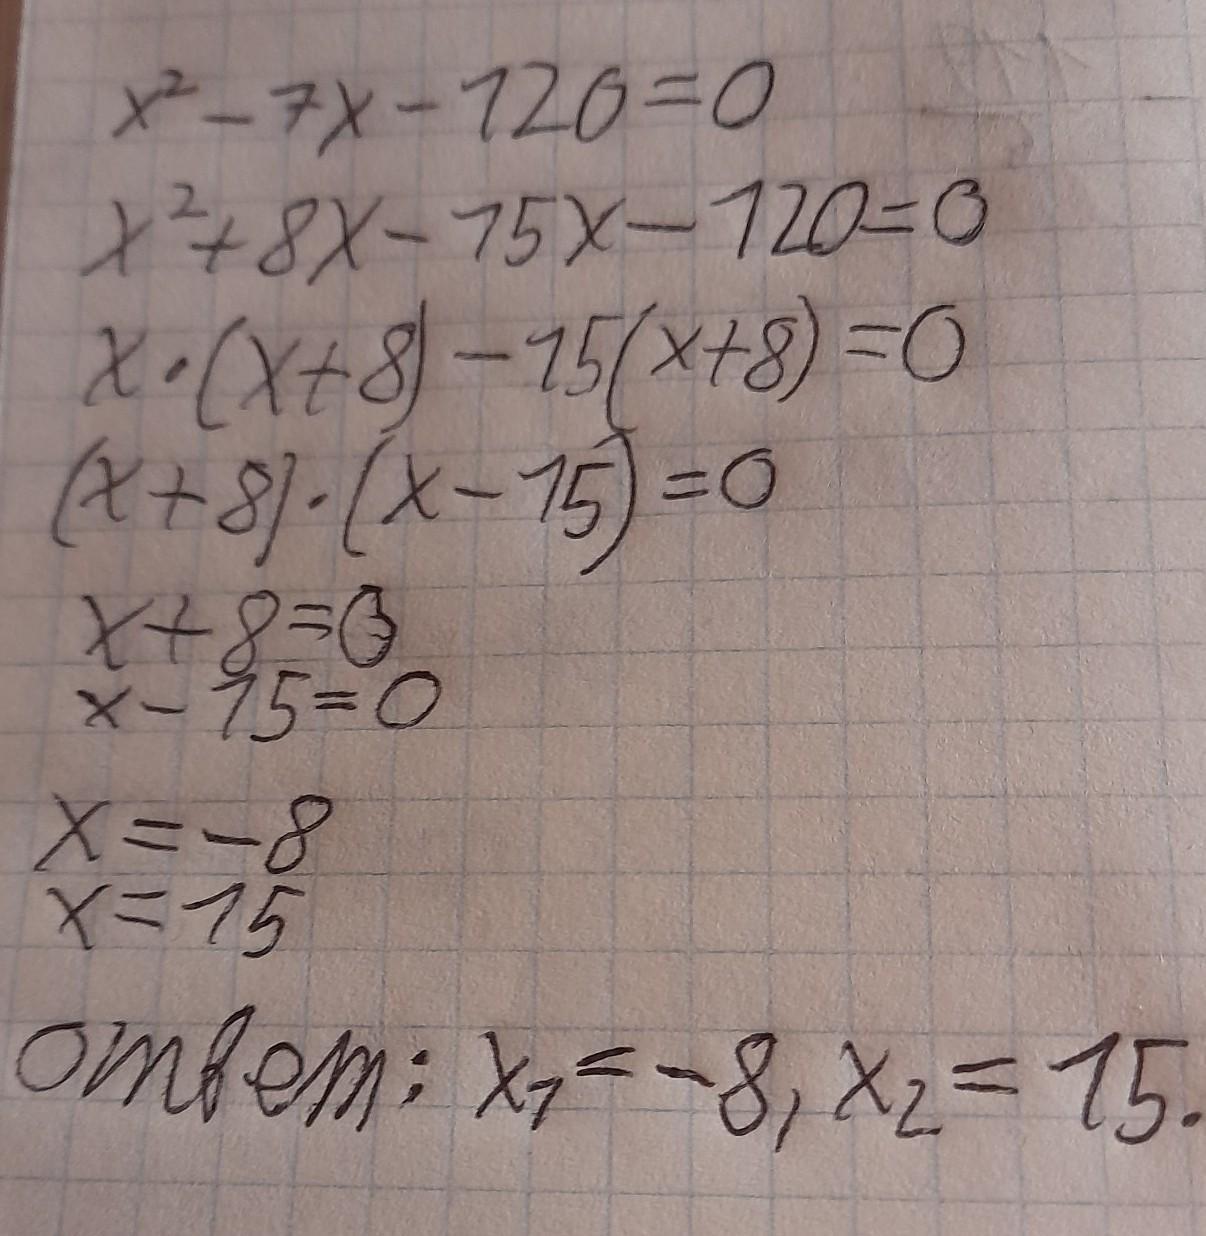 x² - 7x - 120 = 0
x² + 8x - 15x - 120 = 0
x · (x + 8) - 15(x + 8) = 0
(x + 8) · (x - 15) = 0
x + 8 = 0
x - 15 = 0
x = -8
x = 15
ответ: x₁ = -8, x₂ = 15.